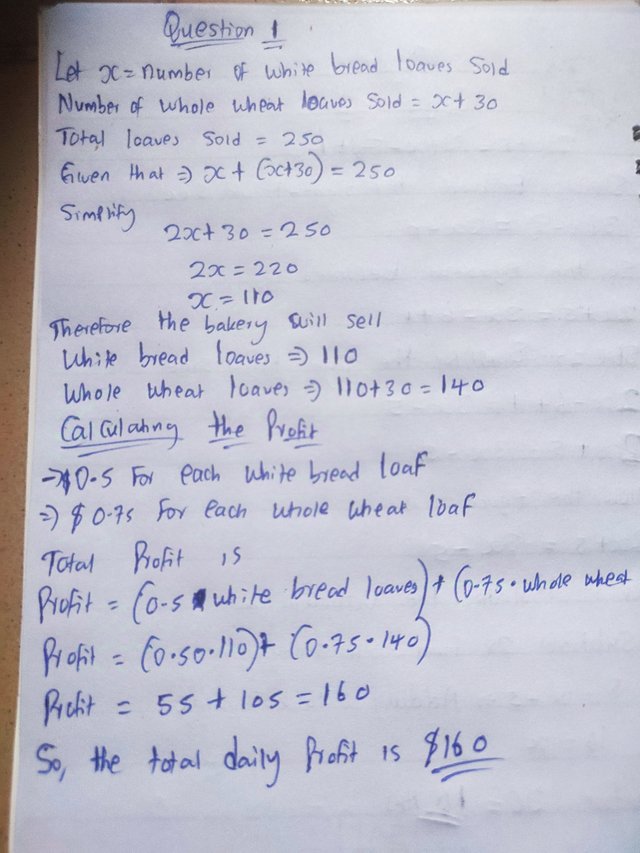 Question 1
Let x = number of white bread loaves sold
Number of whole wheat loaves sold = x + 30
Total loaves sold = 250
Given that ⇒ x + (x+30) = 250
Simplify
2x + 30 = 250
2x = 220
x = 110
Therefore the bakery will sell
White bread loaves ⇒ 110
Whole wheat loaves ⇒ 110+30 = 140
Calculating the Profit
→ $0.5 For each white bread loaf
⇒ $0.75 For each whole wheat loaf
Total Profit is
Profit = (0.5 white bread loaves) + (0.75 · whole wheat
Profit = (0.50·110) + (0.75·140)
Profit = 55 + 105 = 160
So, the total daily Profit is $160